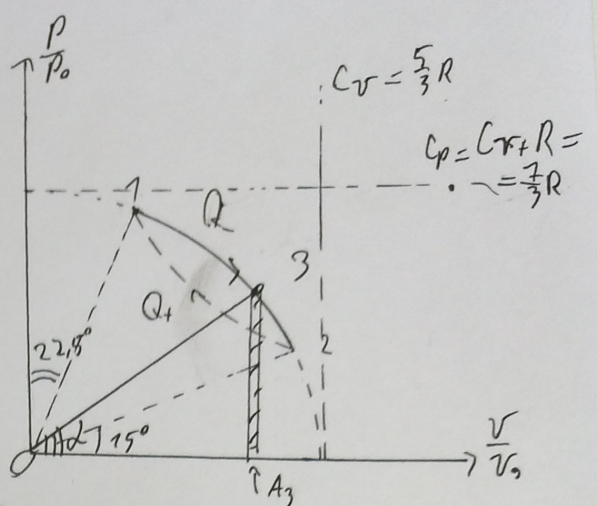 P/P₀
C_v = 5/3 R
C_p = C_v + R =
= 7/3 R
1
Q
3
Q₊
2
22,8°
α
15°
O
v/v₀
↑ A₃